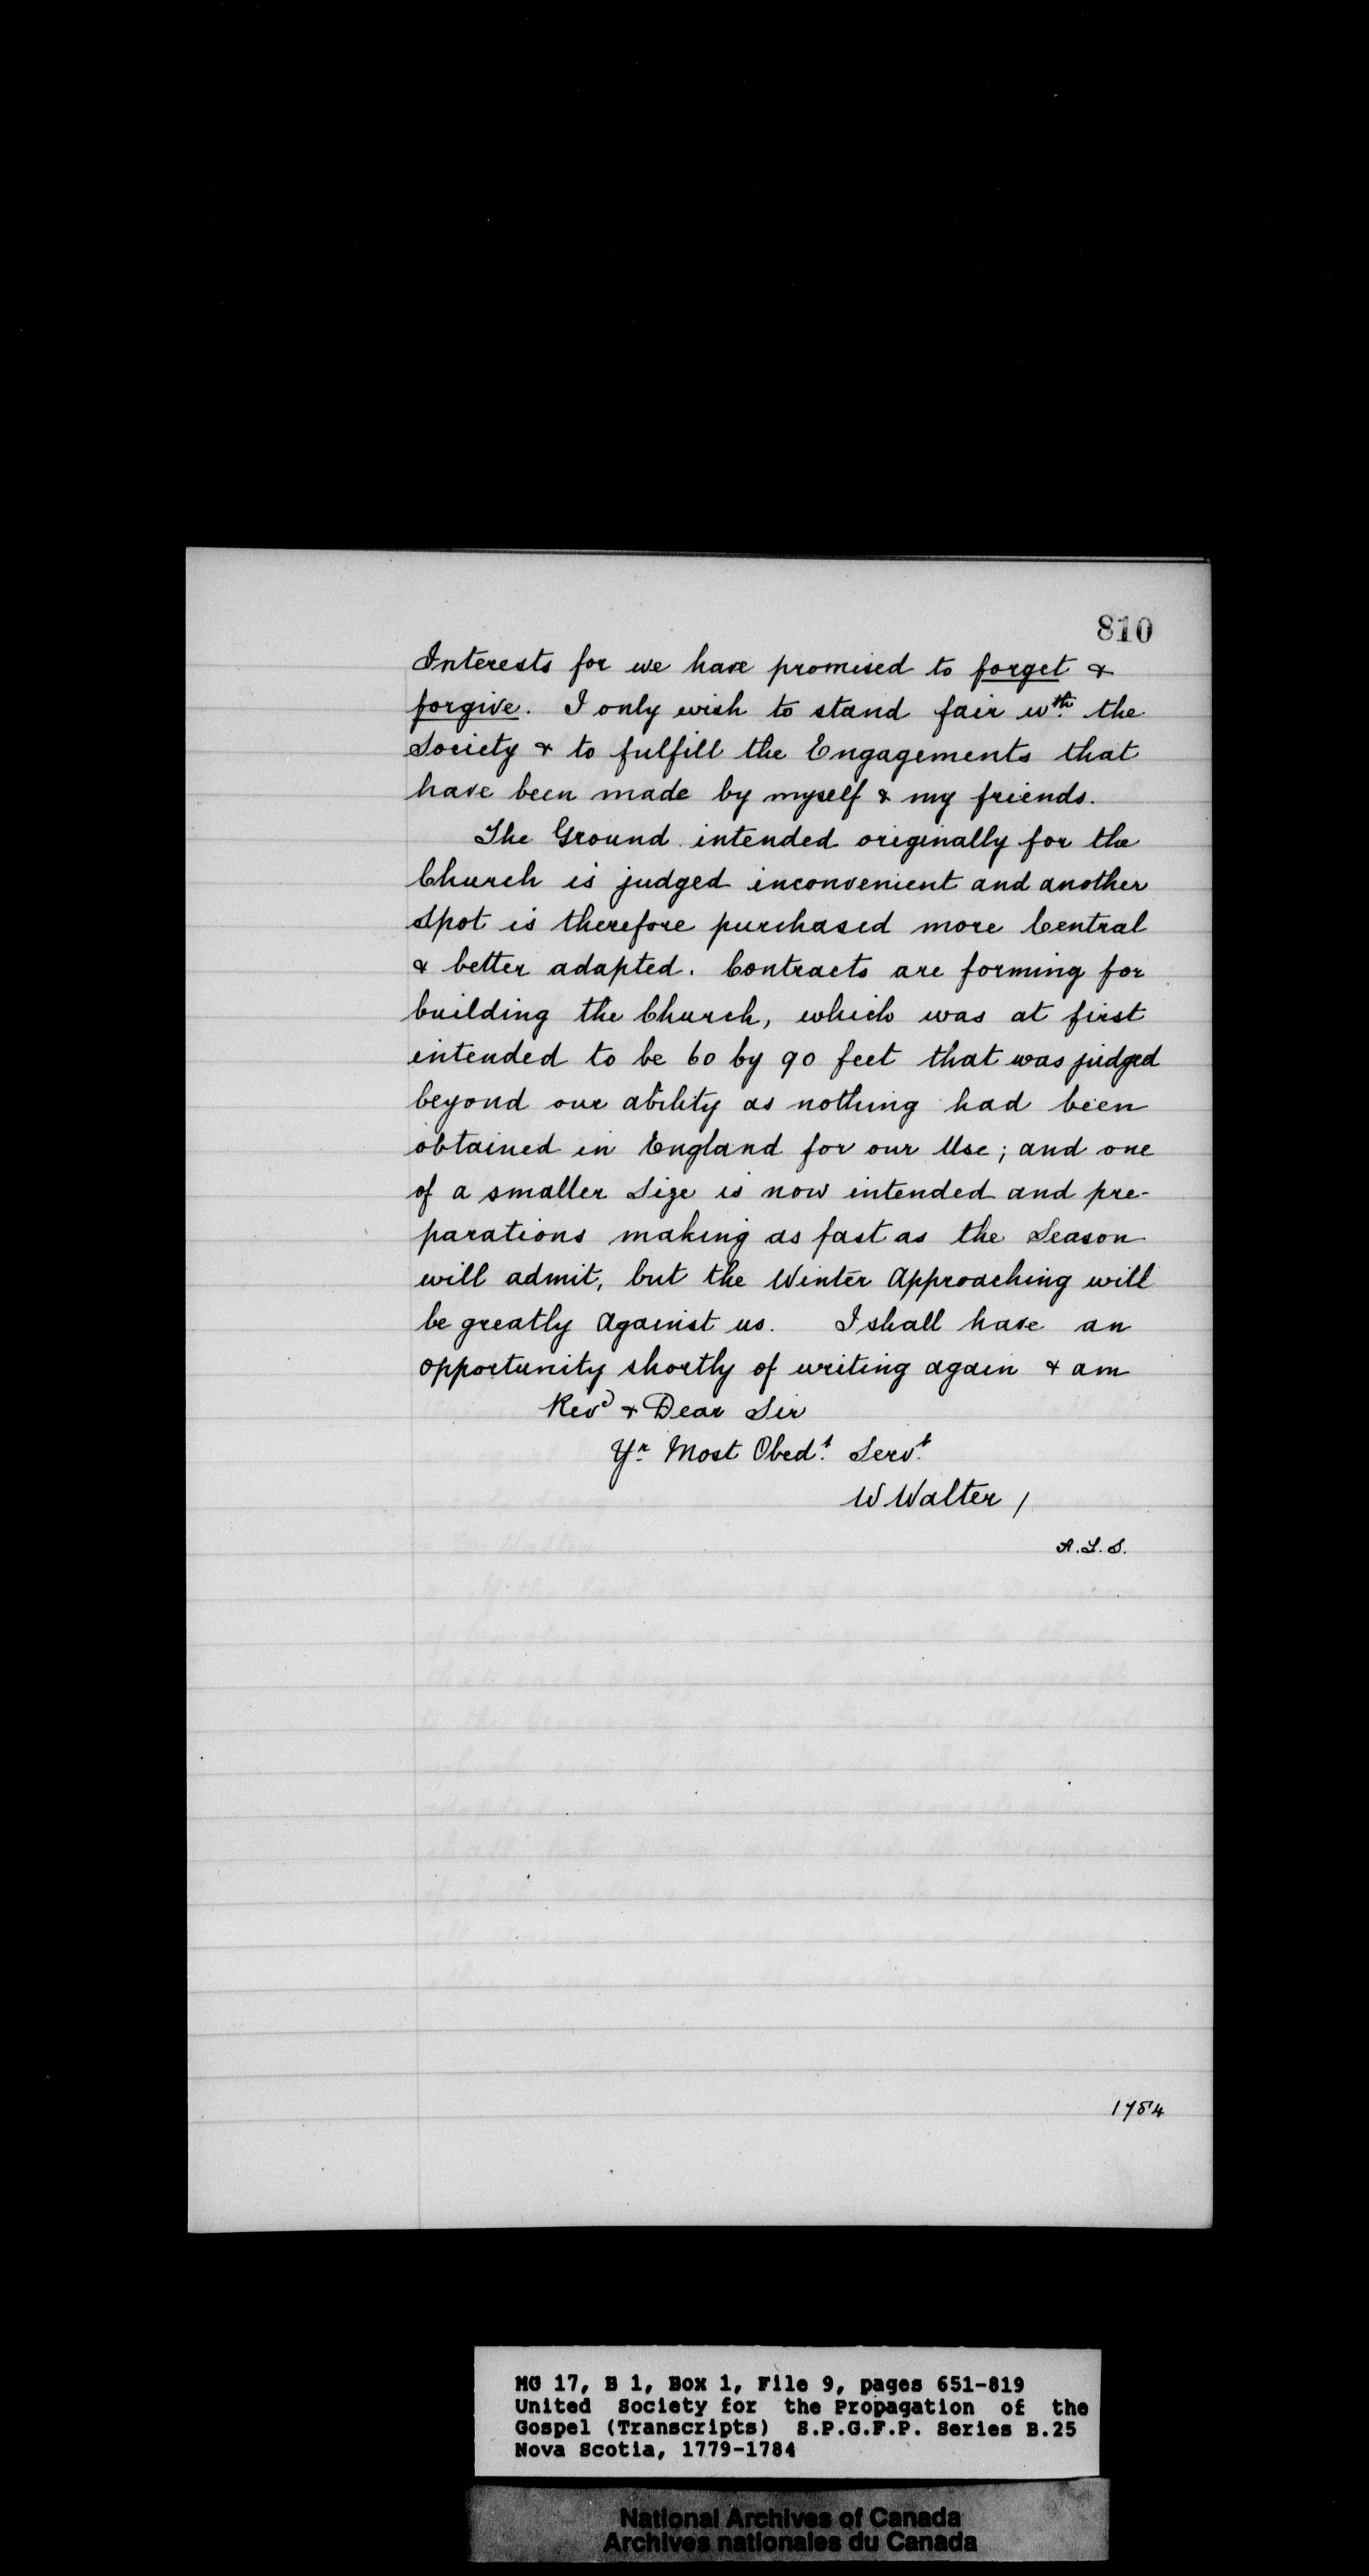 810
Interests for we have promised to forget &
forgive. I only wish to stand fair wth. the
Society & to fulfill the Engagements that
have been made by myself & my friends.
The Ground intended originally for the
Church is judged inconvenient and another
Spot is therefore purchased more Central
& better adapted. Contracts are forming for
building the Church, which was at first
intended to be 60 by 90 feet that was judged
beyond our ability as nothing had been
obtained in England for our Use; and one
of a smaller Size is now intended and pre-
parations making as fast as the Season
will admit, but the Winter Approaching will
be greatly Against us. I shall have an
opportunity shortly of writing again & am
Revd & Dear Sir
Yr. Most Obedt. Servt.
W Walter /
A.L.S.
1784
MG 17, B 1, Box 1, File 9, pages 651-819
United Society for the Propagation of the
Gospel (Transcripts) S.P.G.F.P. Series B.25
Nova Scotia, 1779-1784
National Archives of Canada
Archives nationales du Canada